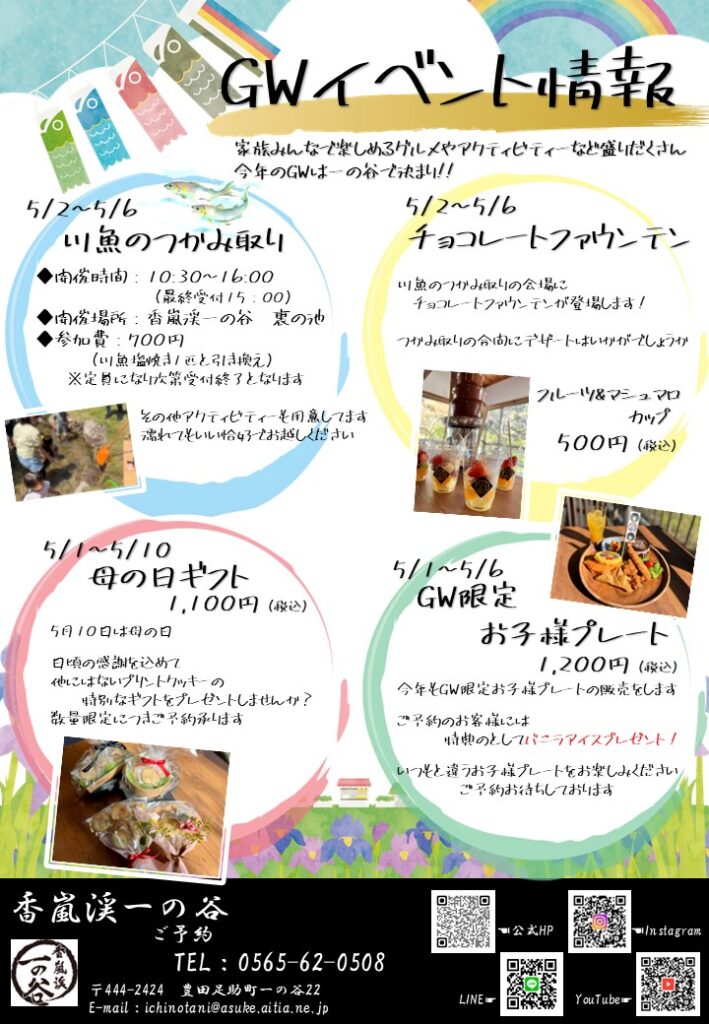 GWイベント情報
家族みんなで楽しめるグルメやアクティビティーなど盛りだくさん
今年のGWは一の谷で決まり!!
5/2～5/6
川魚のつかみ取り
◆開催時間：10:30～16:00
（最終受付15：00）
◆開催場所：香嵐渓一の谷　裏の池
◆参加費：700円
（川魚塩焼き1匹と引き換え）
※定員になり次第受付終了となります
その他アクティビティーも用意してます
濡れてもいい恰好でお越しください
5/2～5/6
チョコレートファウンテン
川魚のつかみ取りの会場に
チョコレートファウンテンが登場します！
つかみ取りの合間にデザートはいかがでしょうか
フルーツ&マシュマロ
カップ
500円（税込）
5/1～5/10
母の日ギフト
1,100円（税込）
5月10日は母の日
日頃の感謝を込めて
他にはないプリントクッキーの
特別なギフトをプレゼントしませんか？
数量限定につきご予約承ります
5/1～5/6
GW限定
お子様プレート
1,200円（税込）
今年もGW限定お子様プレートの販売をします
ご予約のお客様には
特典のとしてバニラアイスプレゼント！
いつもと違うお子様プレートをお楽しみください
ご予約お待ちしております
香嵐渓一の谷
ご予約
TEL：0565-62-0508
〒444-2424　豊田足助町一の谷22
E-mail：ichinotani@asuke.aitia.ne.jp
香嵐渓
一の谷
☚公式HP
☚Instagram
LINE☛
YouTube☛